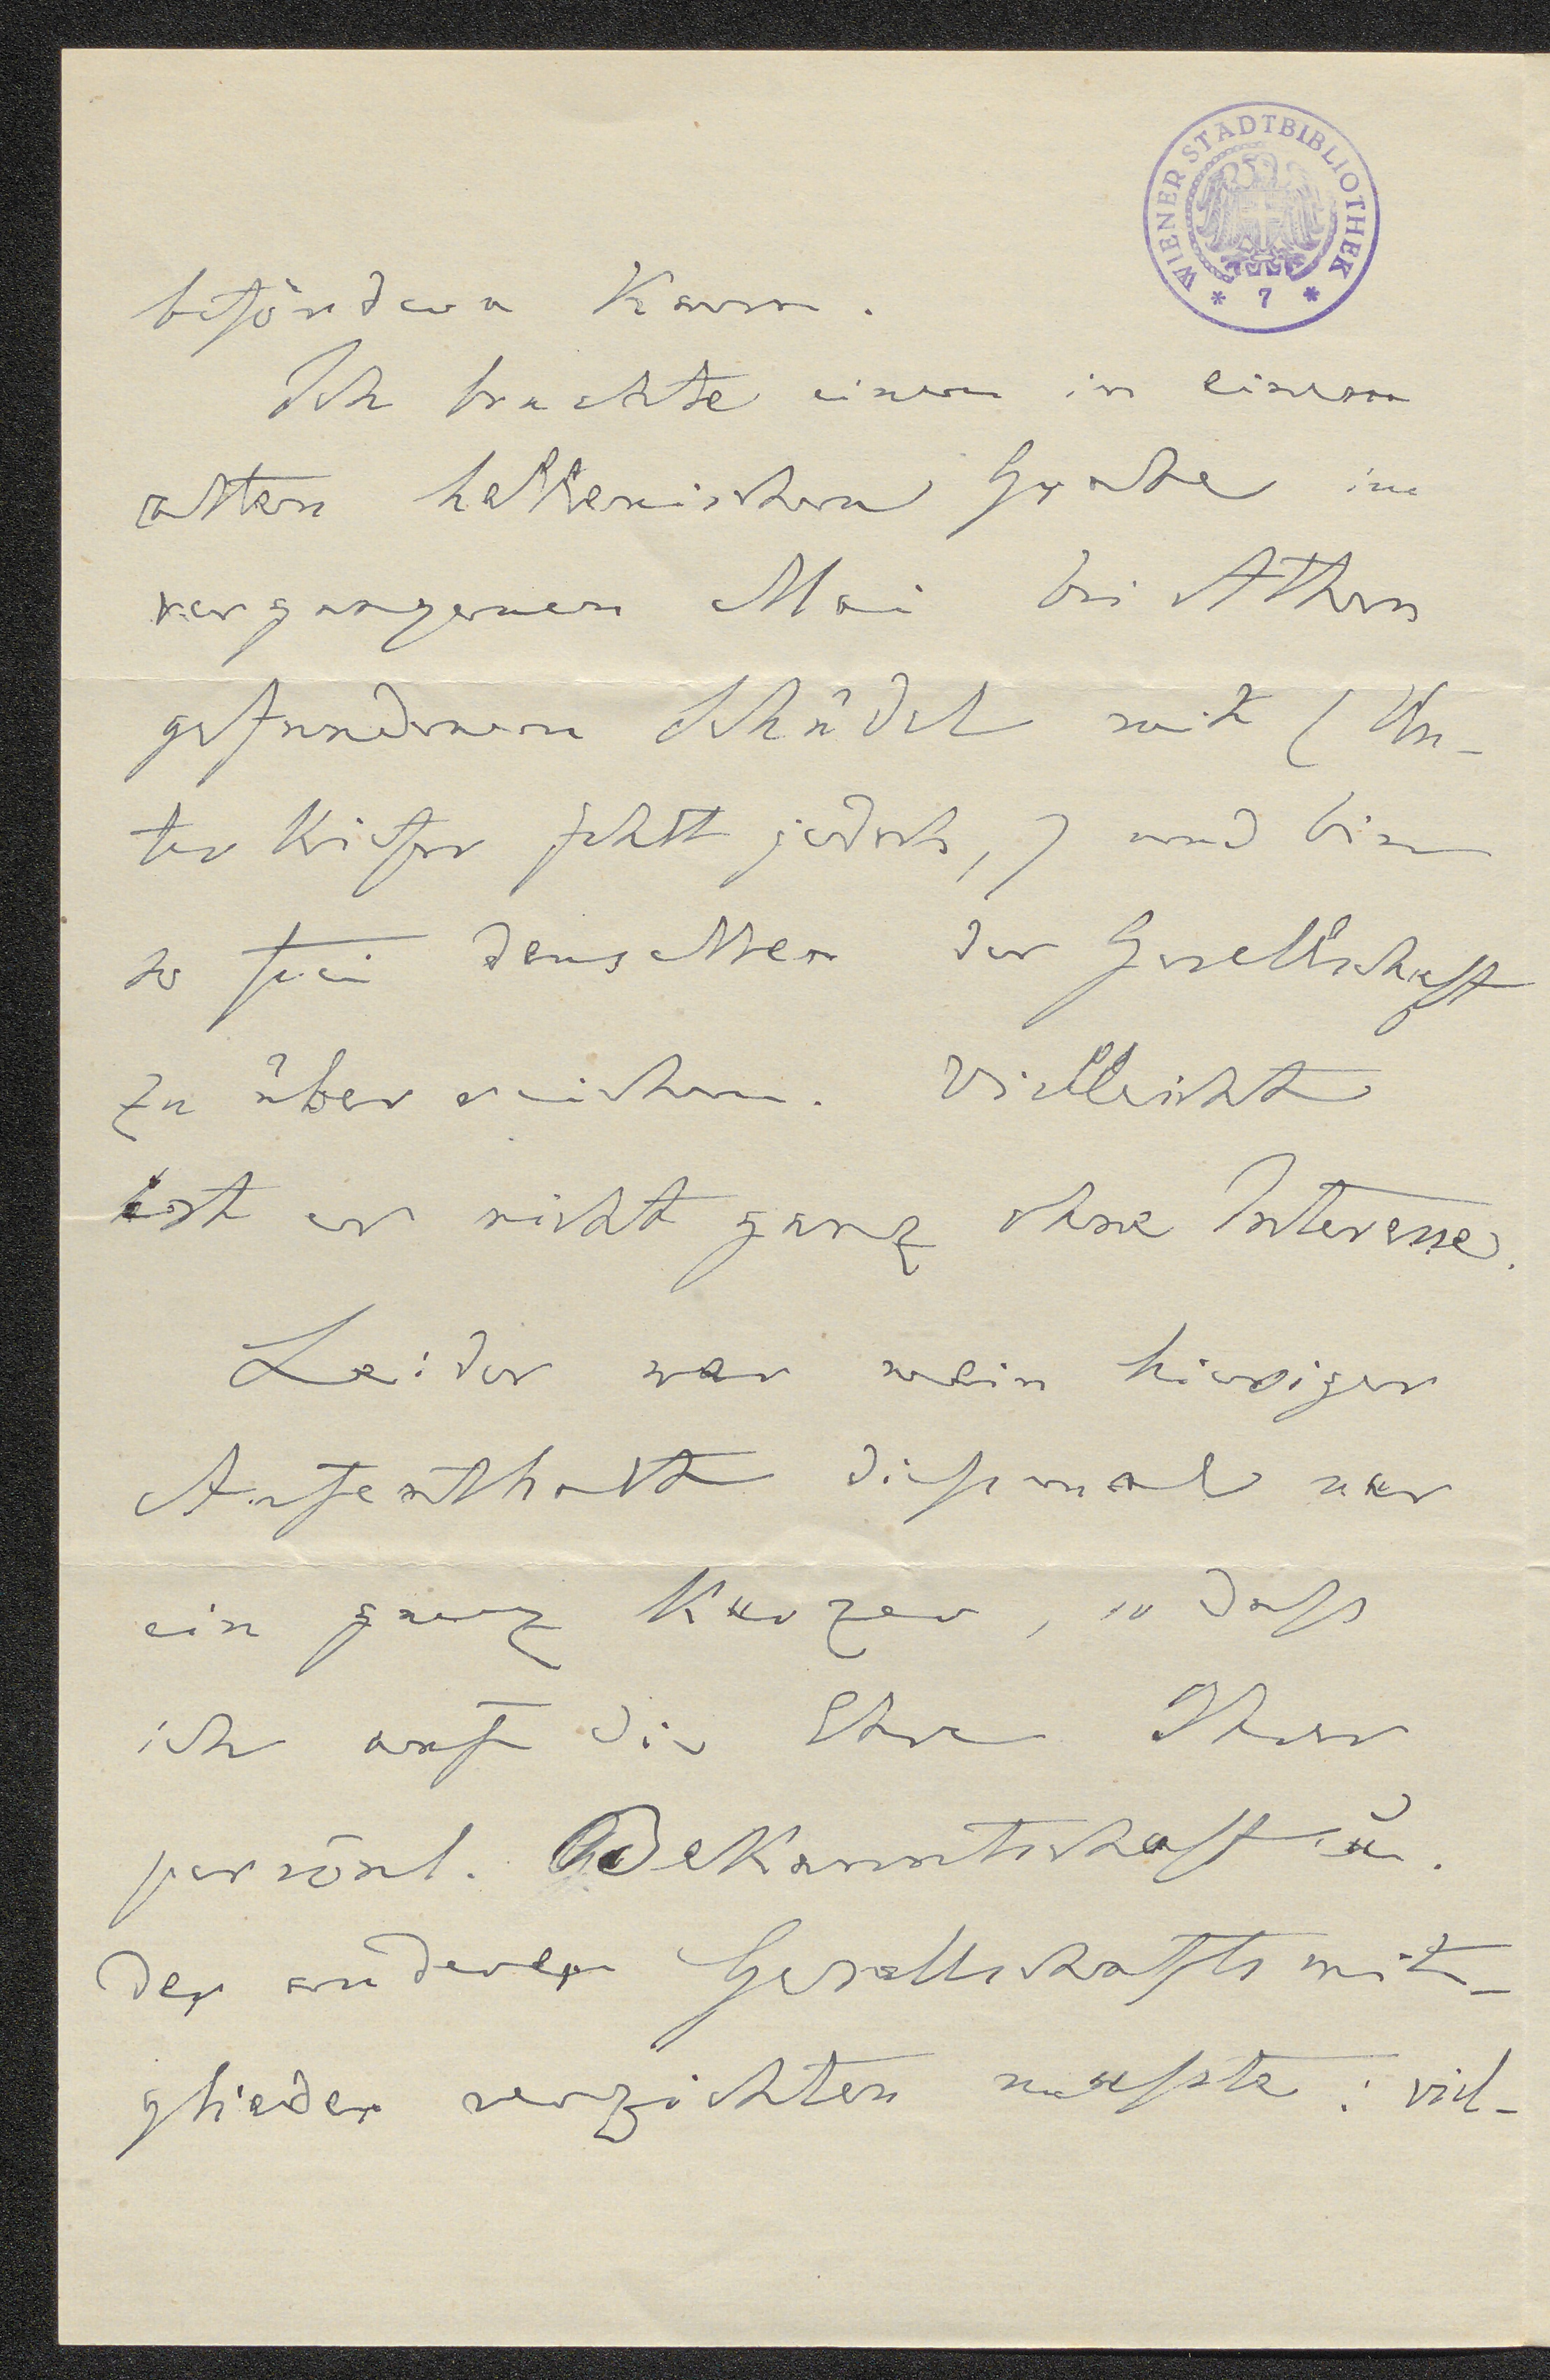 WIENER STADTBIBLIOTHEK
* 7 *
befördern kann.
Ich brachte einen in einem
alten hellenischen Grabe im
vergangenen Mai bei Athen
gefundenen Schädel mit (Un-
ter Kiefer fehlt jedoch,) und bin
so frei denselben der Gesellschaft
zu überreichen. Vielleicht
ist er nicht ganz ohne Interesse.
Leider war mein hiesiger
Aufenthalt dießmal nur
ein ganz kurzer, so daß
ich auf die Ehre Ihrer
persönl. Bekanntschaft u.
der anderen Gesellschaftsmit-
glieder verzichten mußte: viel-